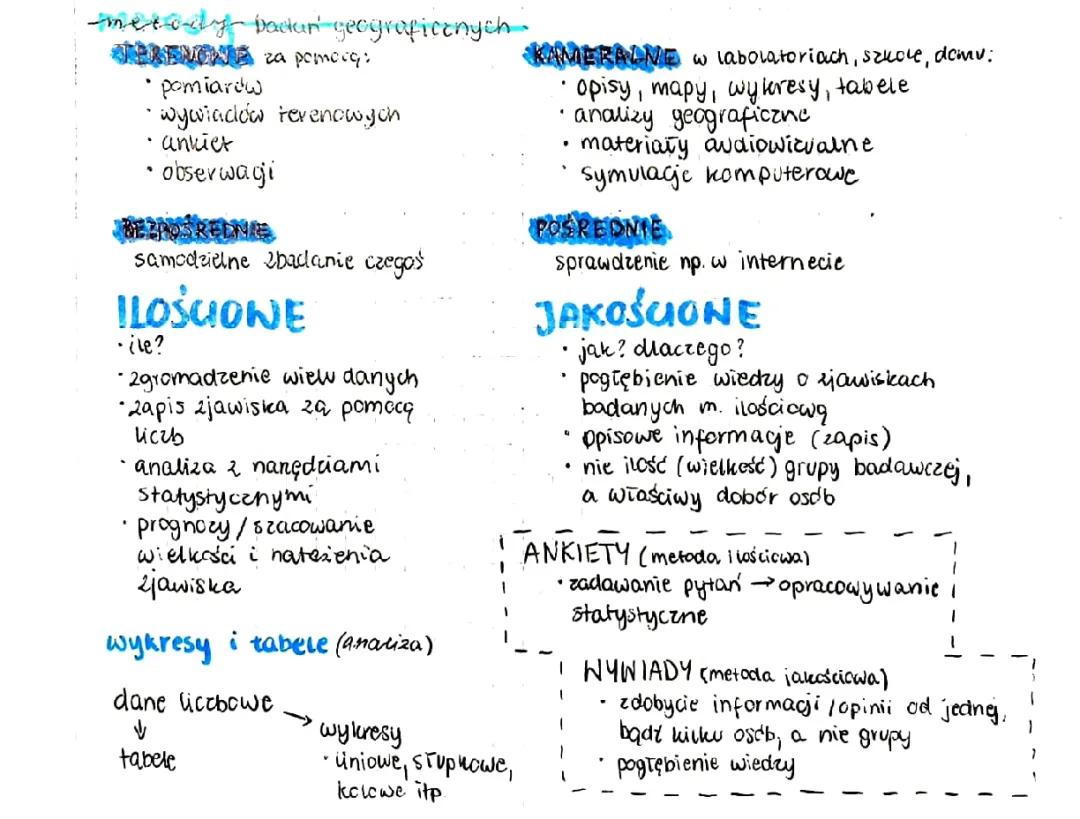 metody badań geograficznych
TERENOWE za pomocą:
· pomiarów
· wywiadów terenowych
· ankiet
· obserwacji
BEZPOŚREDNIE
samodzielne zbadanie czegoś
ILOŚCIOWE
· ile?
· zgromadzenie wielu danych
· zapis zjawiska za pomocą
liczb
· analiza z narzędziami
statystycznymi
· prognozy / szacowanie
wielkości i natężenia
zjawiska
wykresy i tabele (analiza)
dane liczbowe
↓
tabele
→
wykresy
· liniowe, słupkowe,
kołowe itp
KAMERALNE w laboratoriach, szkole, domu:
· opisy, mapy, wykresy, tabele
· analizy geograficzne
· materiały audiowizualne
· symulacje komputerowe
POŚREDNIE
sprawdzenie np. w internecie
JAKOŚCIOWE
· jak? dlaczego?
· pogłębienie wiedzy o zjawiskach
badanych m. ilościową
· opisowe informacje (zapis)
· nie ilość (wielkość) grupy badawczej,
a właściwy dobór osób
ANKIETY (metoda ilościowa)
· zadawanie pytań → opracowywanie
statystyczne
WYWIADY (metoda jakościowa)
· zdobycie informacji / opinii od jednej,
bądź kilku osób, a nie grupy
· pogłębienie wiedzy